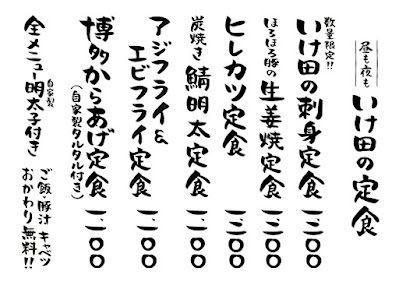 昼も夜も
いけ田の定食
数量限定!!
いけ田の刺身定食 一、三〇〇
ほろほろ豚の生姜焼定食 一、三〇〇
ヒレカツ定食 一、三〇〇
炭焼き鯖明太定食 一、二〇〇
アジフライ&
エビフライ定食 一、二〇〇
博多からあげ定食 一、一〇〇
(自家製タルタル付き)
全メニュー自家製明太子付き
ご飯・豚汁 キャベツ
おかわり無料!!